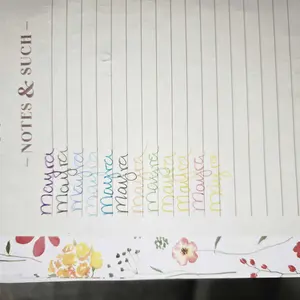 NOTES & SUCH
Mayra
Mayra
Mayra
Mayra
Mayra
Mayra
Mayra
Mayra
Mayra
Mayra
Mayra
Mayra